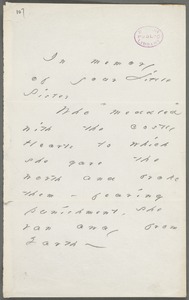 In memory
of your Little
Sister
Who "meddled"
with the costly
Hearts to which
she gave the
worth and broke
them - fearing
punishment, she
ran away from
Earth -